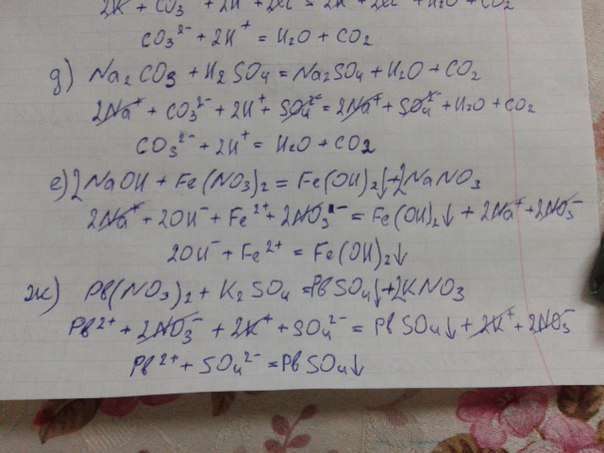 2K + CO3²⁻ + 2H⁺ + 2Cl⁻ = 2K⁺ + 2Cl⁻ + H2O + CO2
CO3²⁻ + 2H⁺ = H2O + CO2
д) Na2CO3 + H2SO4 = Na2SO4 + H2O + CO2
2Na⁺ + CO3²⁻ + 2H⁺ + SO4²⁻ = 2Na⁺ + SO4²⁻ + H2O + CO2
CO3²⁻ + 2H⁺ = H2O + CO2
е) 2NaOH + Fe(NO3)2 = Fe(OH)2↓ + 2NaNO3
2Na⁺ + 2OH⁻ + Fe²⁺ + 2NO3⁻ = Fe(OH)2↓ + 2Na⁺ + 2NO3⁻
2OH⁻ + Fe²⁺ = Fe(OH)2↓
ж) Pb(NO3)2 + K2SO4 = PbSO4↓ + 2KNO3
Pb²⁺ + 2NO3⁻ + 2K⁺ + SO4²⁻ = PbSO4↓ + 2K⁺ + 2NO3⁻
Pb²⁺ + SO4²⁻ = PbSO4↓